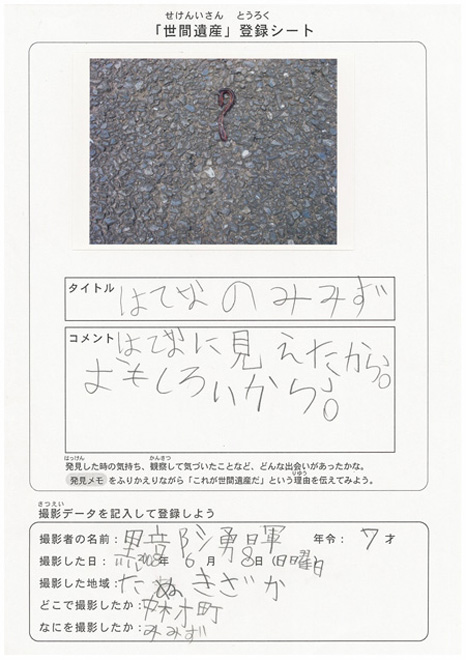 せけんいさん とうろく
「世間遺産」登録シート
タイトル はてなのみみず
コメント はてなに見えたから。
おもしろいから。
はっけん かんさつ
発見した時の気持ち、観察して気づいたことなど、どんな出会いがあったかな。
りゆう
発見メモ をふりかえりながら「これが世間遺産だ」という理由を伝えてみよう。
さつえい
撮影データを記入して登録しよう
撮影者の名前： 勇 年令：7才
撮影した日：2008年6月8日（日曜日
撮影した地域：たぬきざか
どこで撮影したか： 町
なにを撮影したか：みみず